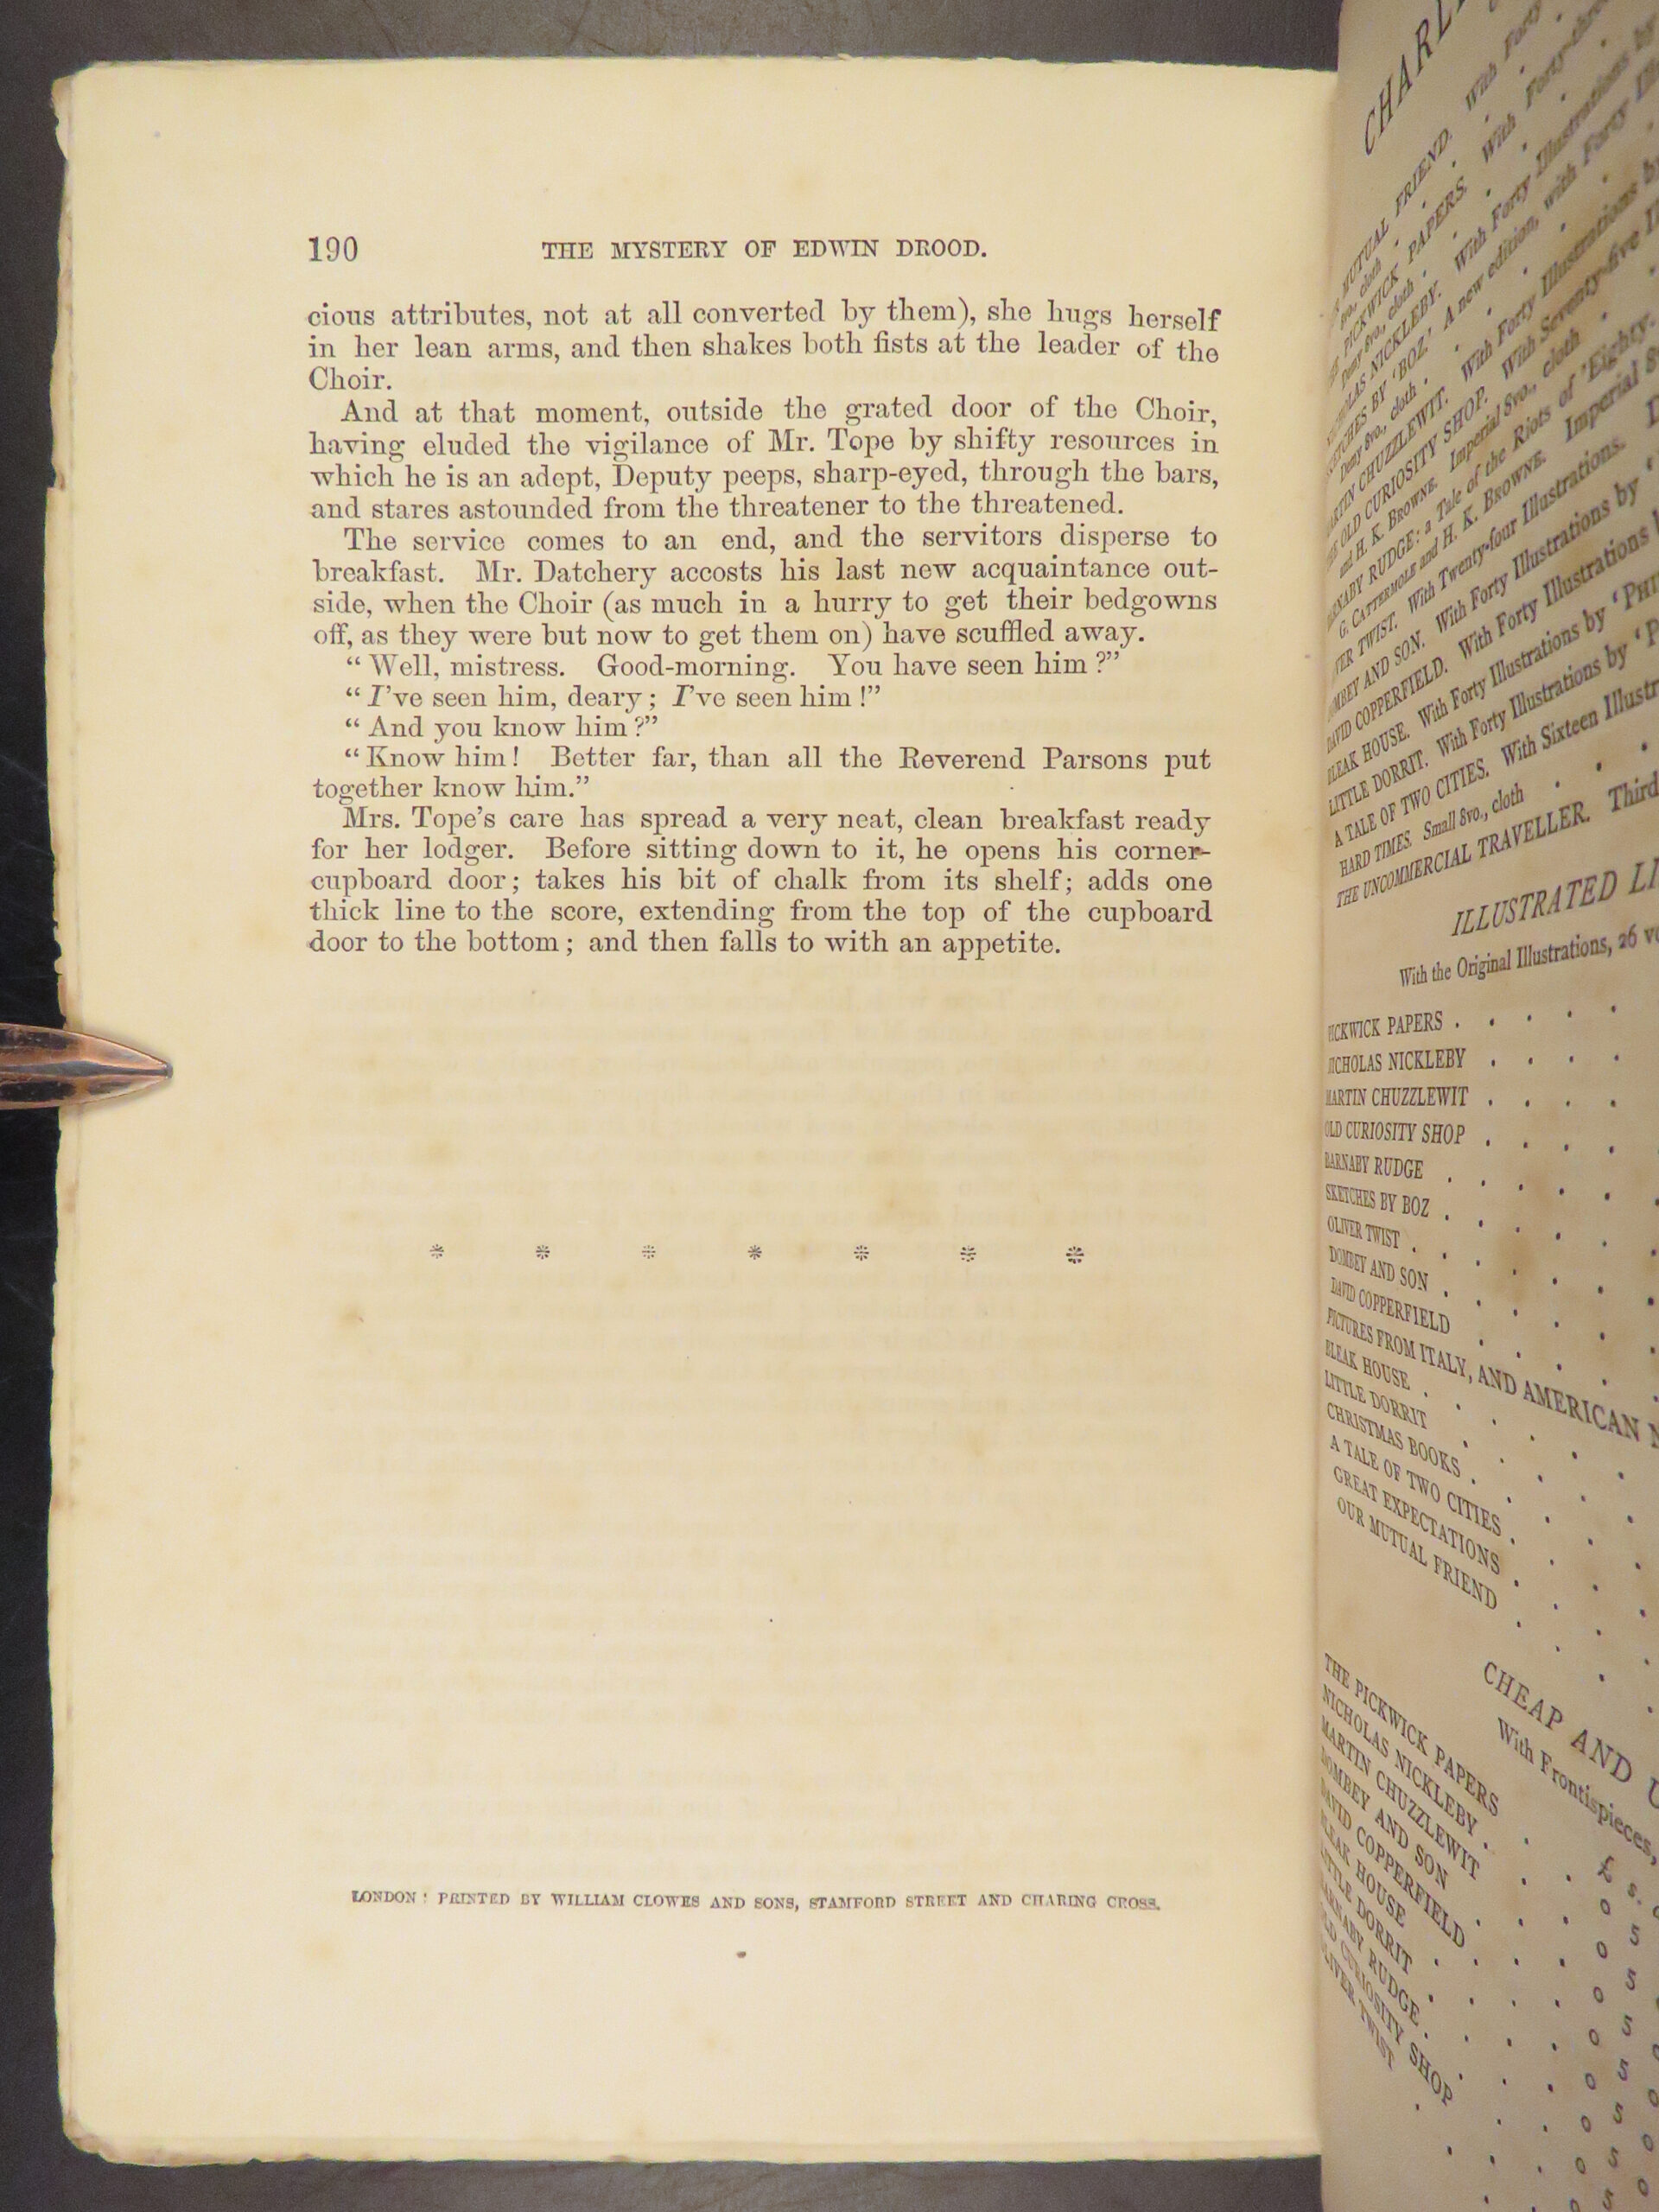 190 THE MYSTERY OF EDWIN DROOD.
cious attributes, not at all converted by them), she hugs herself
in her lean arms, and then shakes both fists at the leader of the
Choir.
And at that moment, outside the grated door of the Choir,
having eluded the vigilance of Mr. Tope by shifty resources in
which he is an adept, Deputy peeps, sharp-eyed, through the bars,
and stares astounded from the threatener to the threatened.
The service comes to an end, and the servitors disperse to
breakfast. Mr. Datchery accosts his last new acquaintance out-
side, when the Choir (as much in a hurry to get their bedgowns
off, as they were but now to get them on) have scuffled away.
“Well, mistress. Good-morning. You have seen him?”
“I’ve seen him, deary; I’ve seen him!”
“And you know him?”
“Know him! Better far, than all the Reverend Parsons put
together know him.”
Mrs. Tope’s care has spread a very neat, clean breakfast ready
for her lodger. Before sitting down to it, he opens his corner-
cupboard door; takes his bit of chalk from its shelf; adds one
thick line to the score, extending from the top of the cupboard
door to the bottom; and then falls to with an appetite.
* * * * * * *
LONDON: PRINTED BY WILLIAM CLOWES AND SONS, STAMFORD STREET AND CHARING CROSS.
MUTUAL FRIEND. With Forty
8vo., cloth
PICKWICK PAPERS. With Forty-three
Demy 8vo., cloth
NICHOLAS NICKLEBY. With Forty Illustrations by
SKETCHES BY ‘BOZ.’ A new edition, with Forty
Demy 8vo., cloth
MARTIN CHUZZLEWIT. With Forty Illustrations by
OLD CURIOSITY SHOP. With Seventy-five
and H. K. BROWNE. Imperial 8vo., cloth
BARNABY RUDGE: a Tale of the Riots of ’Eighty.
G. CATTERMOLE and H. K. BROWNE. Imperial
TWIST. With Twenty-four Illustrations.
DOMBEY AND SON. With Forty Illustrations by
DAVID COPPERFIELD. With Forty Illustrations
BLEAK HOUSE. With Forty Illustrations by ‘
LITTLE DORRIT. With Forty Illustrations by ‘
A TALE OF TWO CITIES. With Sixteen
HARD TIMES. Small 8vo., cloth
THE UNCOMMERCIAL TRAVELLER. Third
ILLUSTRATED
With the Original Illustrations, 26
PICKWICK PAPERS
NICHOLAS NICKLEBY
MARTIN CHUZZLEWIT
OLD CURIOSITY SHOP
BARNABY RUDGE
SKETCHES BY BOZ
OLIVER TWIST
DOMBEY AND SON
DAVID COPPERFIELD
PICTURES FROM ITALY, AND AMERICAN
BLEAK HOUSE
LITTLE DORRIT
CHRISTMAS BOOKS
A TALE OF TWO CITIES
GREAT EXPECTATIONS
OUR MUTUAL FRIEND
CHEAP AND
With Frontispieces,
£ s.
THE PICKWICK PAPERS 0 5
NICHOLAS NICKLEBY 0 5
MARTIN CHUZZLEWIT 0 5
DOMBEY AND SON 0 5
DAVID COPPERFIELD 0 5
BLEAK HOUSE 0 5
LITTLE DORRIT 0 5
BARNABY RUDGE
OLD CURIOSITY SHOP
OLIVER TWIST